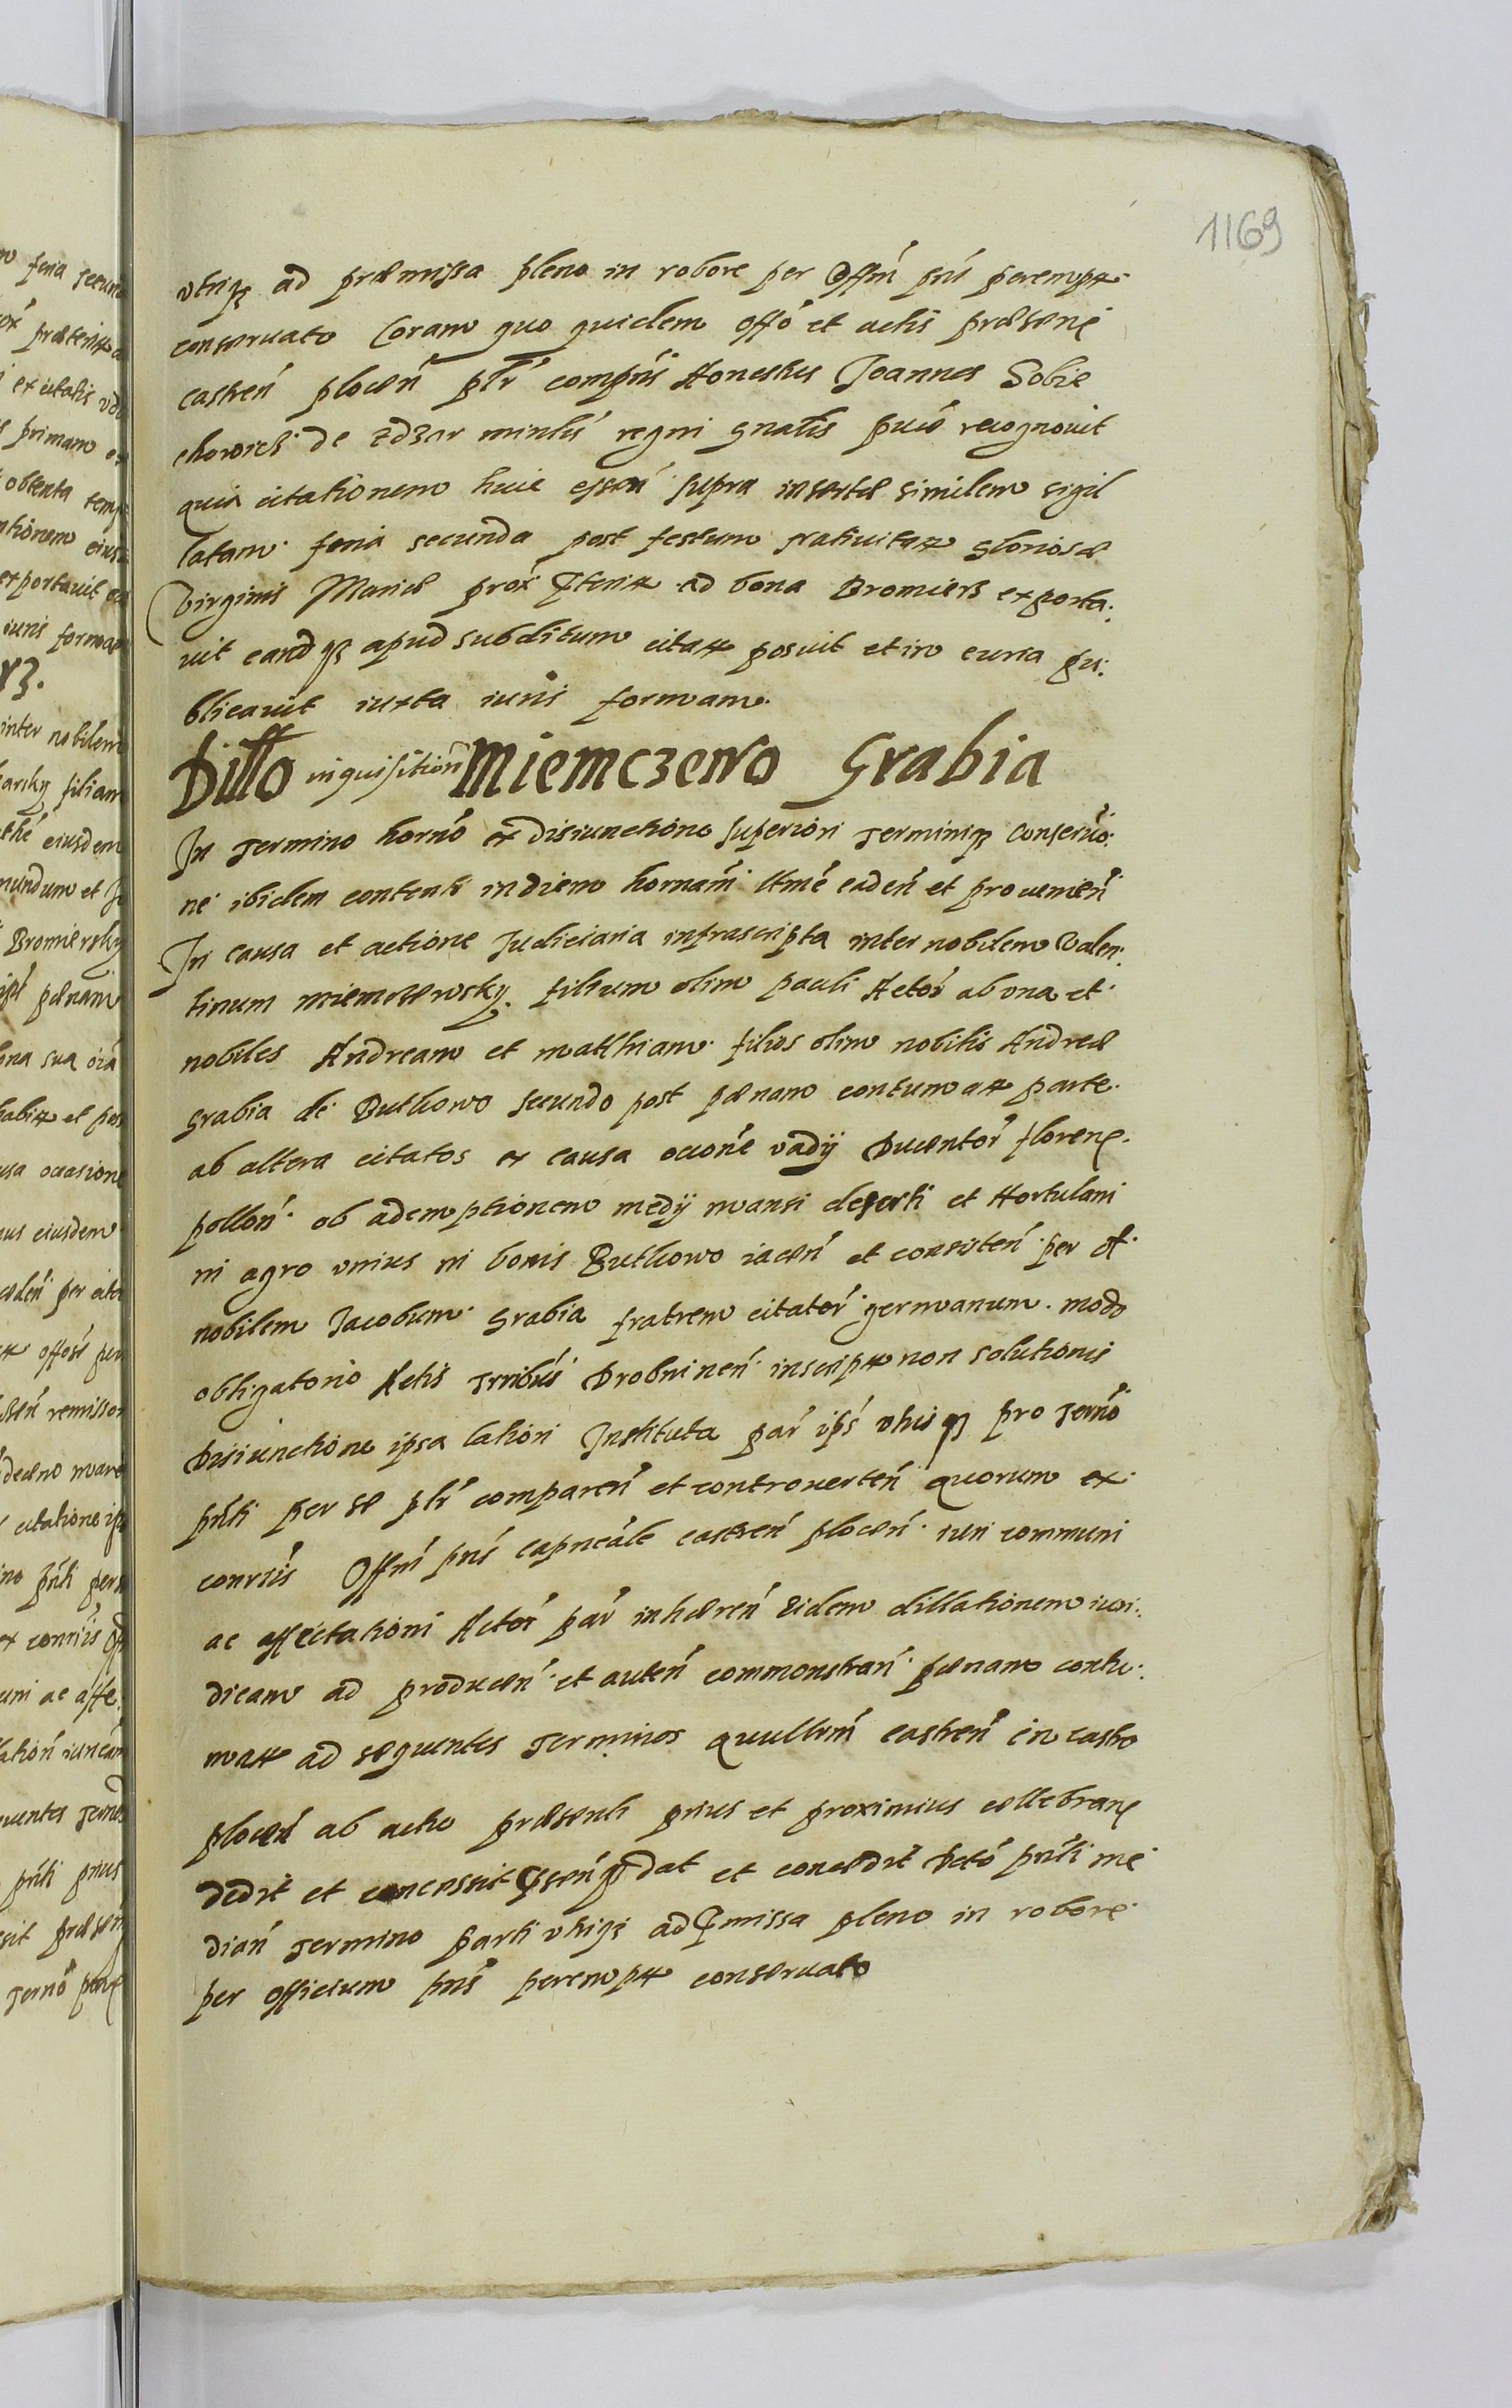 1169
vtriqз ad præmissa pleno in robore per Offm̃ pñs perempt
conseruato Coram quo quidem offõ et actis præsenẽ
castreñ ploceñ plr̃ compñs Honestus Joannes Sobie
chowicz de Zdzar mintrl̃s regni gñalis pũce recognouit
quia citationem huic supra insertæ similem sigil
latam feria secunda post festum Natiuitat gloriosæ
Virginis Mariæ prox̃ pterit ad bona Bromiers exporta:
uit eandqз apud subditum citat posuit et in curia pu:
blicauit iuxta iuris formam
Dillo inquisitioñ Miemczewo Grabia
In Termino hornõ ex disiunctione superiori Terminiqз conseruõ:
ne ibidem contenti in diem hornam̃ ltmẽ cadeñ et prouenieñ
In causa et actione Judiciaria infrascripta inter nobilem Valen:
tinum miemczewsky filium olim pauli Actor̃ ab vna et
nobiles Andream et mathiam filios olim nobilis Andreæ
grabia de Buthowo secundo post pænam contumat parte
ab altera citatos ex causa occõne vadÿ Ducentor̃ florenẽ
polloñ ob ademptionem medÿ mansi deserti et Hortulani
ni agro vnius in bonis Buthowo iaceñ et consisteñ per ol
nobilem Jacobum grabia fratrem citator̃ germanum modo
obligatorio Actis Trribũs Drobnineñ inscript non solutionis
Disiunctione ipsa latiori Instituta par̃ ip̃s vtrisqз pro Termõ
pñti per se plr̃ compareñ et controuerteñ quorum ex
conrũs Offm̃ pñs capneãle castreñ ploceñ iuri communi
ac affectationi Actor̃ par̃ inhæreñ eidem dillationem iuri:
dicam ad produceñ et auteñ commonstrañ pænam contu:
mat ad sequentes Terminos quærellrm̃ castreñ in castro
ploceñ ab actu præsenti prius et proximius cellebranẽ
dedit et concessit dat et concedit Dctõ pñti me
diañ Termino parti vtriqз ad pmissa pleno in robore
per officium pñs perempt conseruato